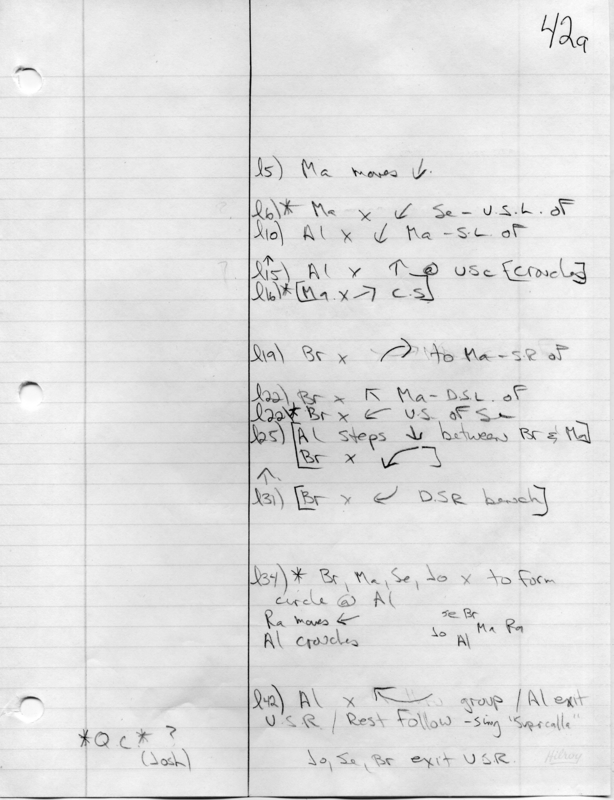 42a
l5) Ma moves ↓.
l6)* Ma x ↙ Se - U.S.L. of
l10) Al x ↙ Ma - S.L. of
↑
l15) Al x ↑ @ USC [crouches]
l16)* [Ma x ↗ C.S]
l19) Br x ↷ to Ma - S.R of
l22) Br x ↖ Ma - D.S.L. of
l22)* Br x ← U.S. of Se
l25) [Al steps ↓ between Br & Ma]
[Br x ↙ ]
↑
l31) [Br x ↙ D.S.R bench]
l34)* Br, Ma, Se, Jo x to form
circle @ Al
Ra moves ←
Al crouches
Se Br
Jo Al Ma Ra
l42) Al x ↖ group / Al exit
U.S.R. / Rest Follow - sing "Supercalla"
*Q C* ?
(Josh)
Jo, Se, Br exit U.S.R.
Hilroy